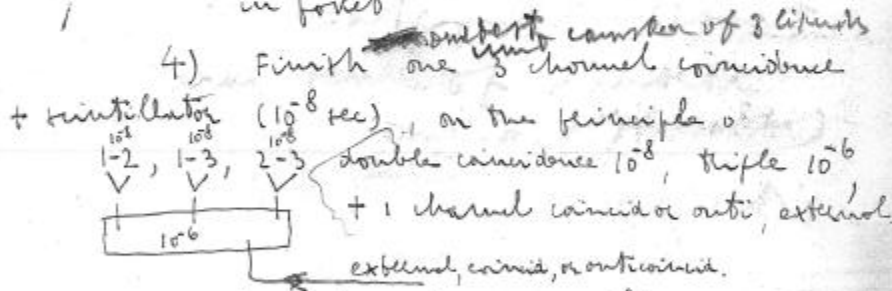 in
4) Finish one 3 channel coincidence
+ scintillator (10⁻⁸ sec), on the principle o
10⁻⁸ 10⁻⁸ 10⁻⁸
1-2, 1-3, 2-3 double coincidence 10⁻⁸, triple 10⁻⁶,
+ 1 channel coincid or anti, external
10⁻⁶
external, coincid, or anticoincid.